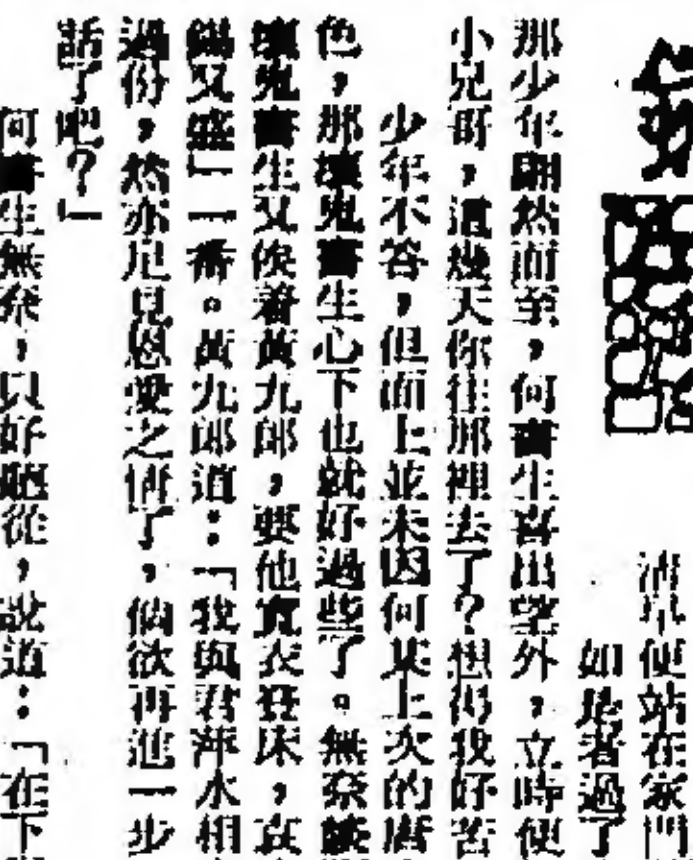 清早便站在家門
如是者過了
那少年翩然而至，何書生喜出望外，立時便
小兄哥，這幾天你往那裡去了？想得我好苦
少年不答，但面上並未因何某上次的
色，那壞鬼書生心下也就好過些了。無奈
壞鬼書生又俟着黃九郎，要他寬衣登床，哀
錫又盛」一番。黃九郎道：「我與君萍水相
過份，然亦足見恩愛之情了，倘欲再進一步
話了吧？」
何書生無奈，只好從，說道：「在下